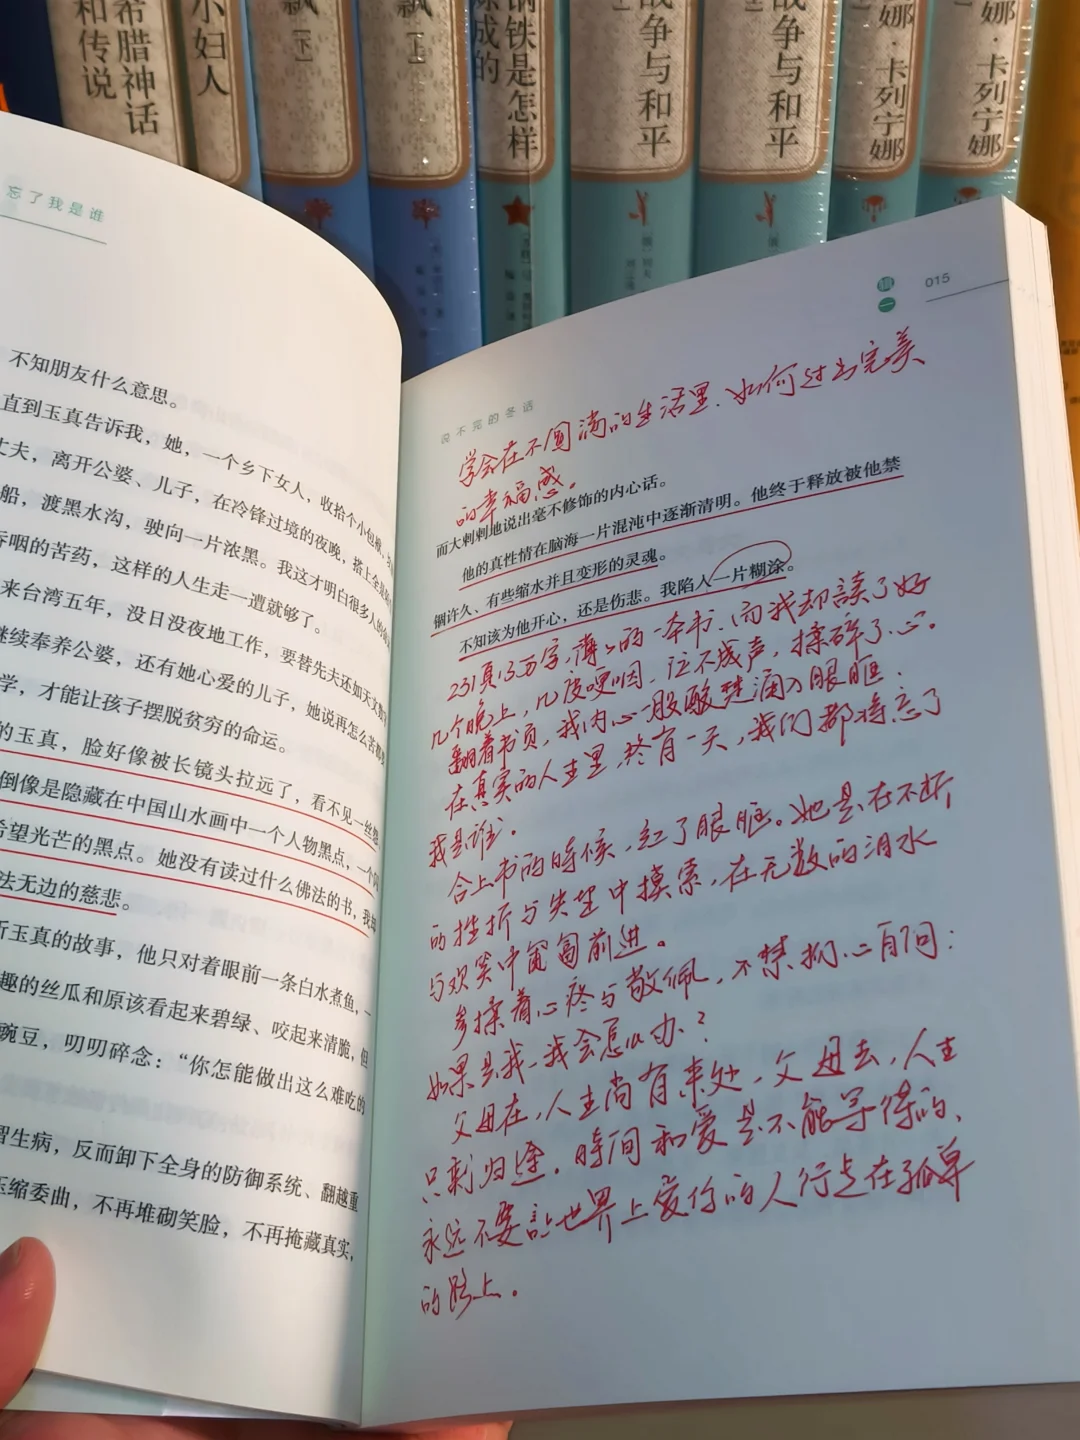 希腊神话
和传说
小妇人
飘
[下]
飘
[上]
钢铁是怎样
炼成的
战争与和平
战争与和平
娜·卡列宁娜
娜·卡列宁娜
忘了我是谁
不知朋友什么意思。
直到玉真告诉我，她，一个乡下女人，收拾个小包袱，
丈夫，离开公婆、儿子，在冷锋过境的夜晚，搭上全是
船，渡黑水沟，驶向一片浓黑。我这才明白很多人的
吞咽的苦药，这样的人生走一遭就够了。
来台湾五年，没日没夜地工作，要替先夫还如天文数
继续奉养公婆，还有她心爱的儿子，她说再怎么苦都
学，才能让孩子摆脱贫穷的命运。
的玉真，脸好像被长镜头拉远了，看不见一丝
倒像是隐藏在中国山水画中一个人物黑点，一个闪
希望光芒的黑点。她没有读过什么佛法的书，我却
法无边的慈悲。
听玉真的故事，他只对着眼前一条白水煮鱼，一
趣的丝瓜和原该看起来碧绿、咬起来清脆，但
豌豆，叨叨碎念：“你怎能做出这么难吃的
智生病，反而卸下全身的防御系统、翻越重
压缩委曲，不再堆砌笑脸，不再掩藏真实，
辑一
015
说不完的冬话
学会在不圆满的生活里、如何过出完美
的幸福感。
而大剌剌地说出毫不修饰的内心话。
他的真性情在脑海一片混沌中逐渐清明。他终于释放被他禁
锢许久、有些缩水并且变形的灵魂。
不知该为他开心，还是伤悲。我陷入一片糊涂。
231頁13万字，薄薄的一本书、而我却読了好
几个晚上，几度哽咽，泣不成声，揉碎了心。
翻着书页，我内心一股酸楚涌入眼眶、
在真实的人生里，终有一天，我们都将忘了
我是谁。
合上书的時候，红了眼眶。她是在不断
的挫折与失望中摸索，在无数的泪水
与欢笑中匍匐前进。
参揉着心疼与敬佩，不禁抚心自问：
如果是我，我会怎么办？
父母在，人生尚有来处，父母去，人生
只剩归途。時间和爱是不能等待的、
永远不要让世界上爱你的人行走在孤单
的路上。